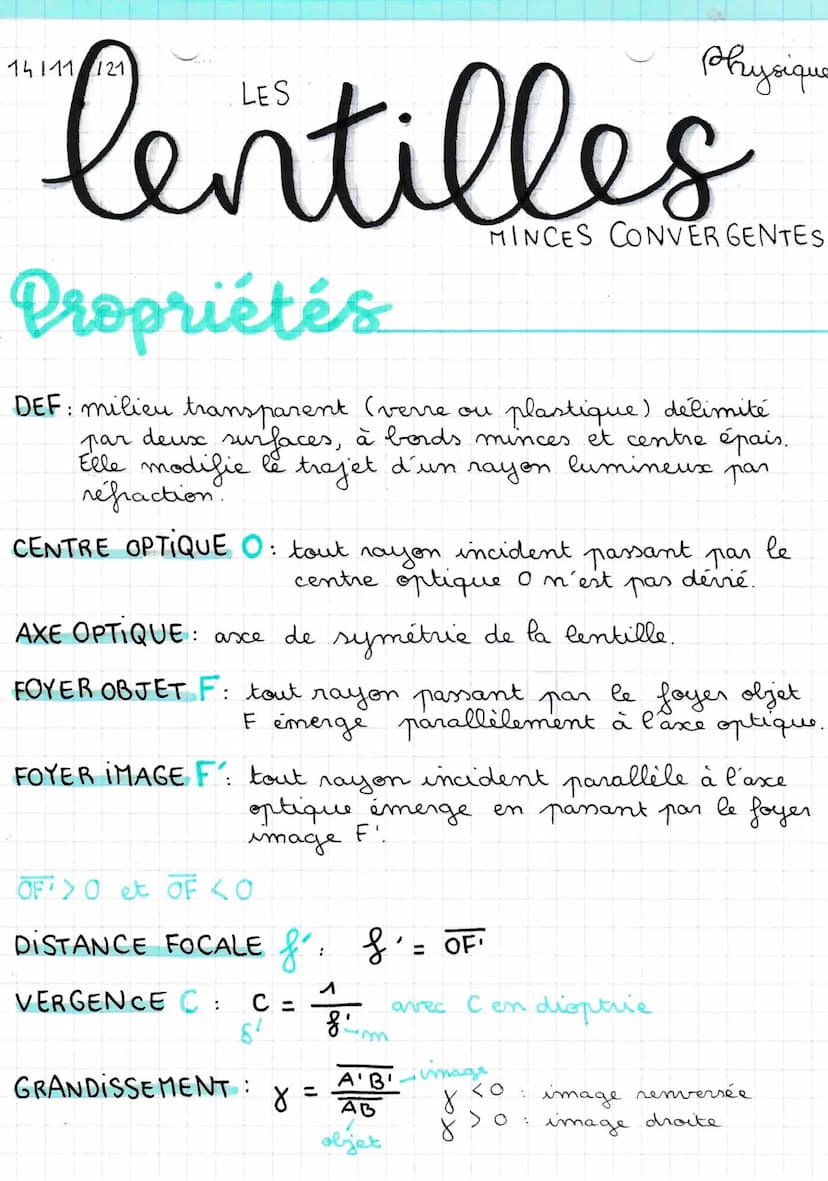 14/11/21
Physique
LES
lentilles
MINCES CONVERGENTES
Propriétés
DEF : milieu transparent (verre ou plastique) délimité
par deux surfaces, à bords minces et centre épais.
Elle modifie le trajet d'un rayon lumineux par
réfraction.
CENTRE OPTIQUE O : tout rayon incident passant par le
centre optique O n'est pas dévié.
AXE OPTIQUE : axe de symétrie de la lentille.
FOYER OBJET F : tout rayon passant par le foyer objet
F émerge parallèlement à l'axe optique.
FOYER IMAGE F' : tout rayon incident parallèle à l'axe
optique émerge en passant par le foyer
image F'.
O̅F̅'̅ > 0 et O̅F̅ < 0
DISTANCE FOCALE f' : f' = O̅F̅'̅
VERGENCE C : C = 1/f' avec C en dioptrie
δ' m
GRANDISSEMENT : γ = A̅'̅B̅'̅/A̅B̅ image
γ < 0 : image renversée
γ > 0 : image droite
objet